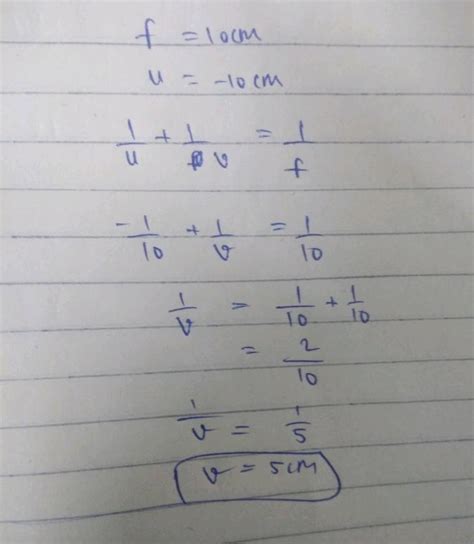 f = 10cm
u = -10cm
1/u + 1/v = 1/f
-1/10 + 1/v = 1/10
1/v = 1/10 + 1/10
= 2/10
1/v = 1/5
v = 5cm